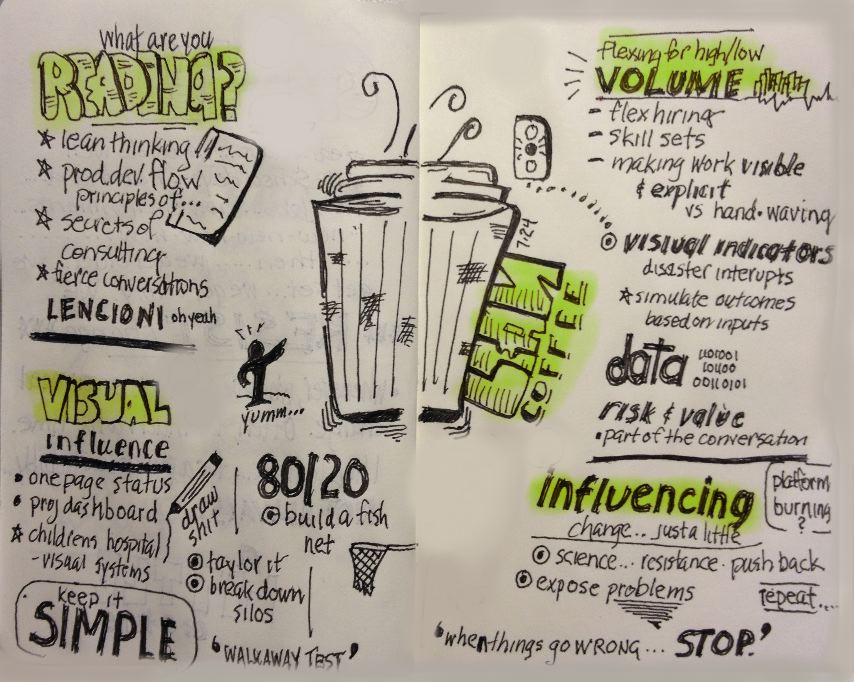 what are you
READING?
lean thinking
prod.dev. flow
principles of...
secrets of
consulting
fierce conversations
LENCIONI oh yeah
VISUAL
influence
one page status
proj dashboard
childrens hospital
-visual systems
draw
shit
keep it
SIMPLE
yumm...
80/20
build a fish
net
taylor it
break down
silos
'WALKAWAY TEST'
7/24
LEAN
COFFEE
flexing for high/low
VOLUME
- flex hiring
- skill sets
- making work visible
& explicit
vs hand-waving
visual indicators
disaster interupts
simulate outcomes
based on inputs
data
risk & value
part of the conversation
influencing
change... just a little
platform
burning
?
science... resistance. push back
expose problems
repeat....
'when things go WRONG... STOP.'